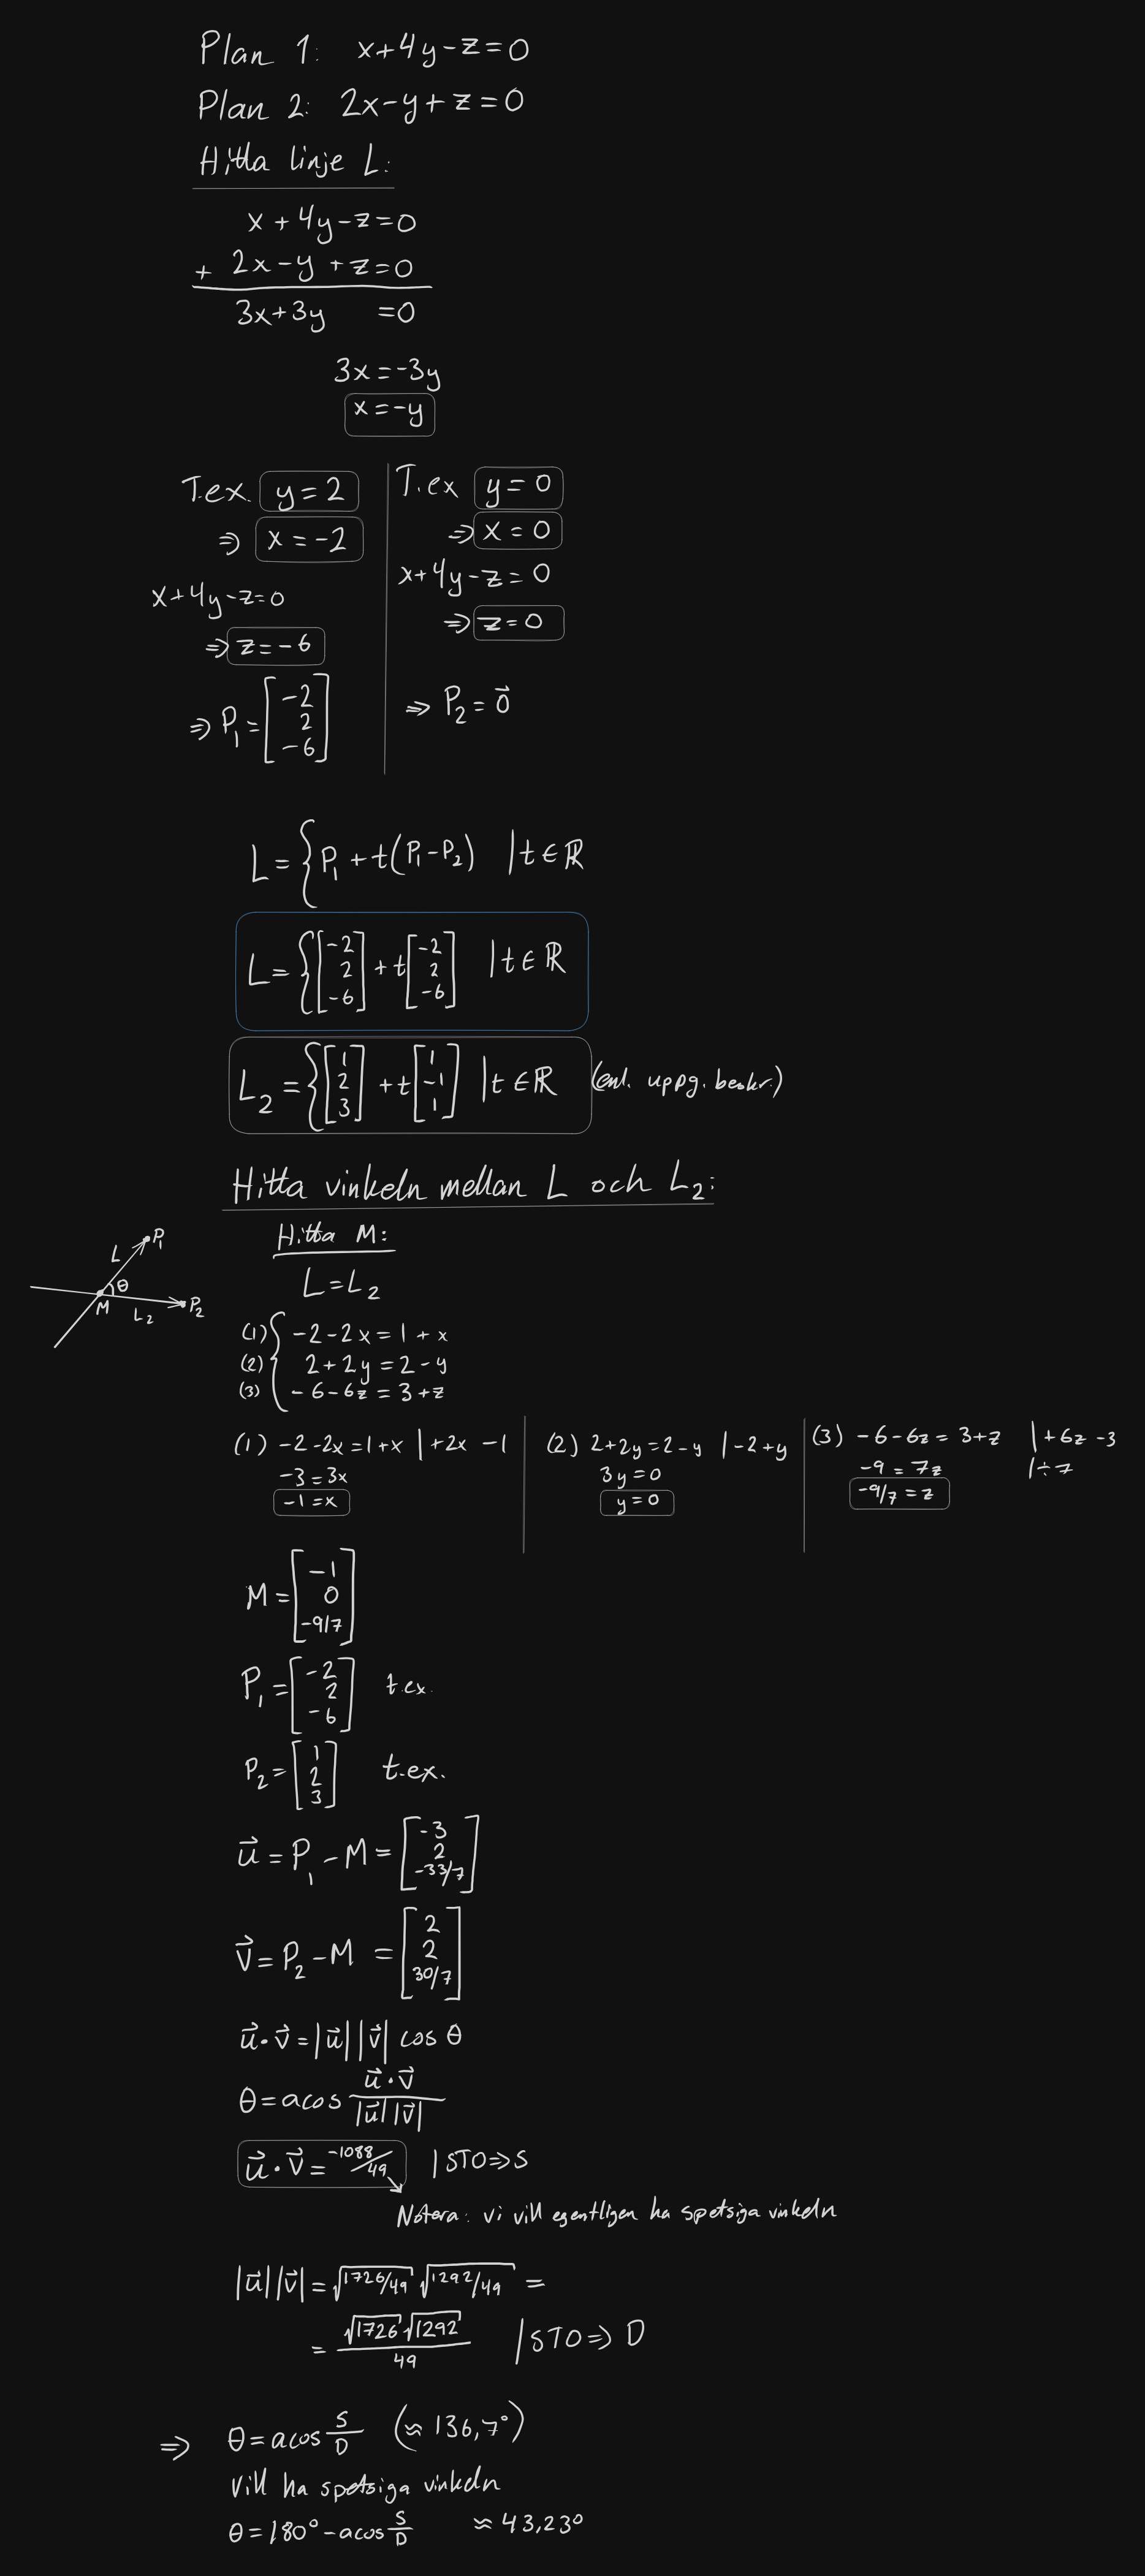 Plan 1: x+4y-z=0
Plan 2: 2x-y+z=0
Hitta linje L:
x+4y-z=0
+ 2x-y+z=0
3x+3y =0
3x=-3y
x=-y
T.ex. y=2
⇒ x=-2
x+4y-z=0
⇒ z=-6
⇒ P₁=[-2
2
-6]
T.ex y=0
⇒ x=0
x+4y-z=0
⇒ z=0
⇒ P₂=0⃗
L={P₁+t(P₁-P₂) |t∈ℝ
L={[-2 2 -6]+t[-2 2 -6] |t∈ℝ
L₂={[1 2 3]+t[1 -1 1] |t∈ℝ (enl. uppg. beskr.)
Hitta vinkeln mellan L och L₂:
L P₁
θ
M L₂ P₂
Hitta M:
L=L₂
(1) { -2-2x=1+x
(2) 2+2y=2-y
(3) -6-6z=3+z
(1) -2-2x=1+x |+2x -1
-3=3x
-1=x
(2) 2+2y=2-y |-2+y
3y=0
y=0
(3) -6-6z=3+z |+6z-3
-9=7z |÷7
-9/7=z
M=[-1
0
-9/7]
P₁=[-2
2
-6] t.ex.
P₂=[1
2
3] t.ex.
u⃗=P₁-M=[-3
2
-33/7]
v⃗=P₂-M=[2
2
30/7]
u⃗·v⃗=|u⃗||v⃗| cos θ
θ=acos u⃗·v⃗/|u⃗||v⃗|
u⃗·v⃗=-1088/49 |STO⇒S
Notera: vi vill egentligen ha spetsiga vinkeln
|u⃗||v⃗|=√1726/49 √1292/49 =
= √1726√1292/49 |STO⇒D
⇒ θ=acos S/D (≈136,7°)
Vill ha spetsiga vinkeln
θ=180°-acos S/D ≈43,23°